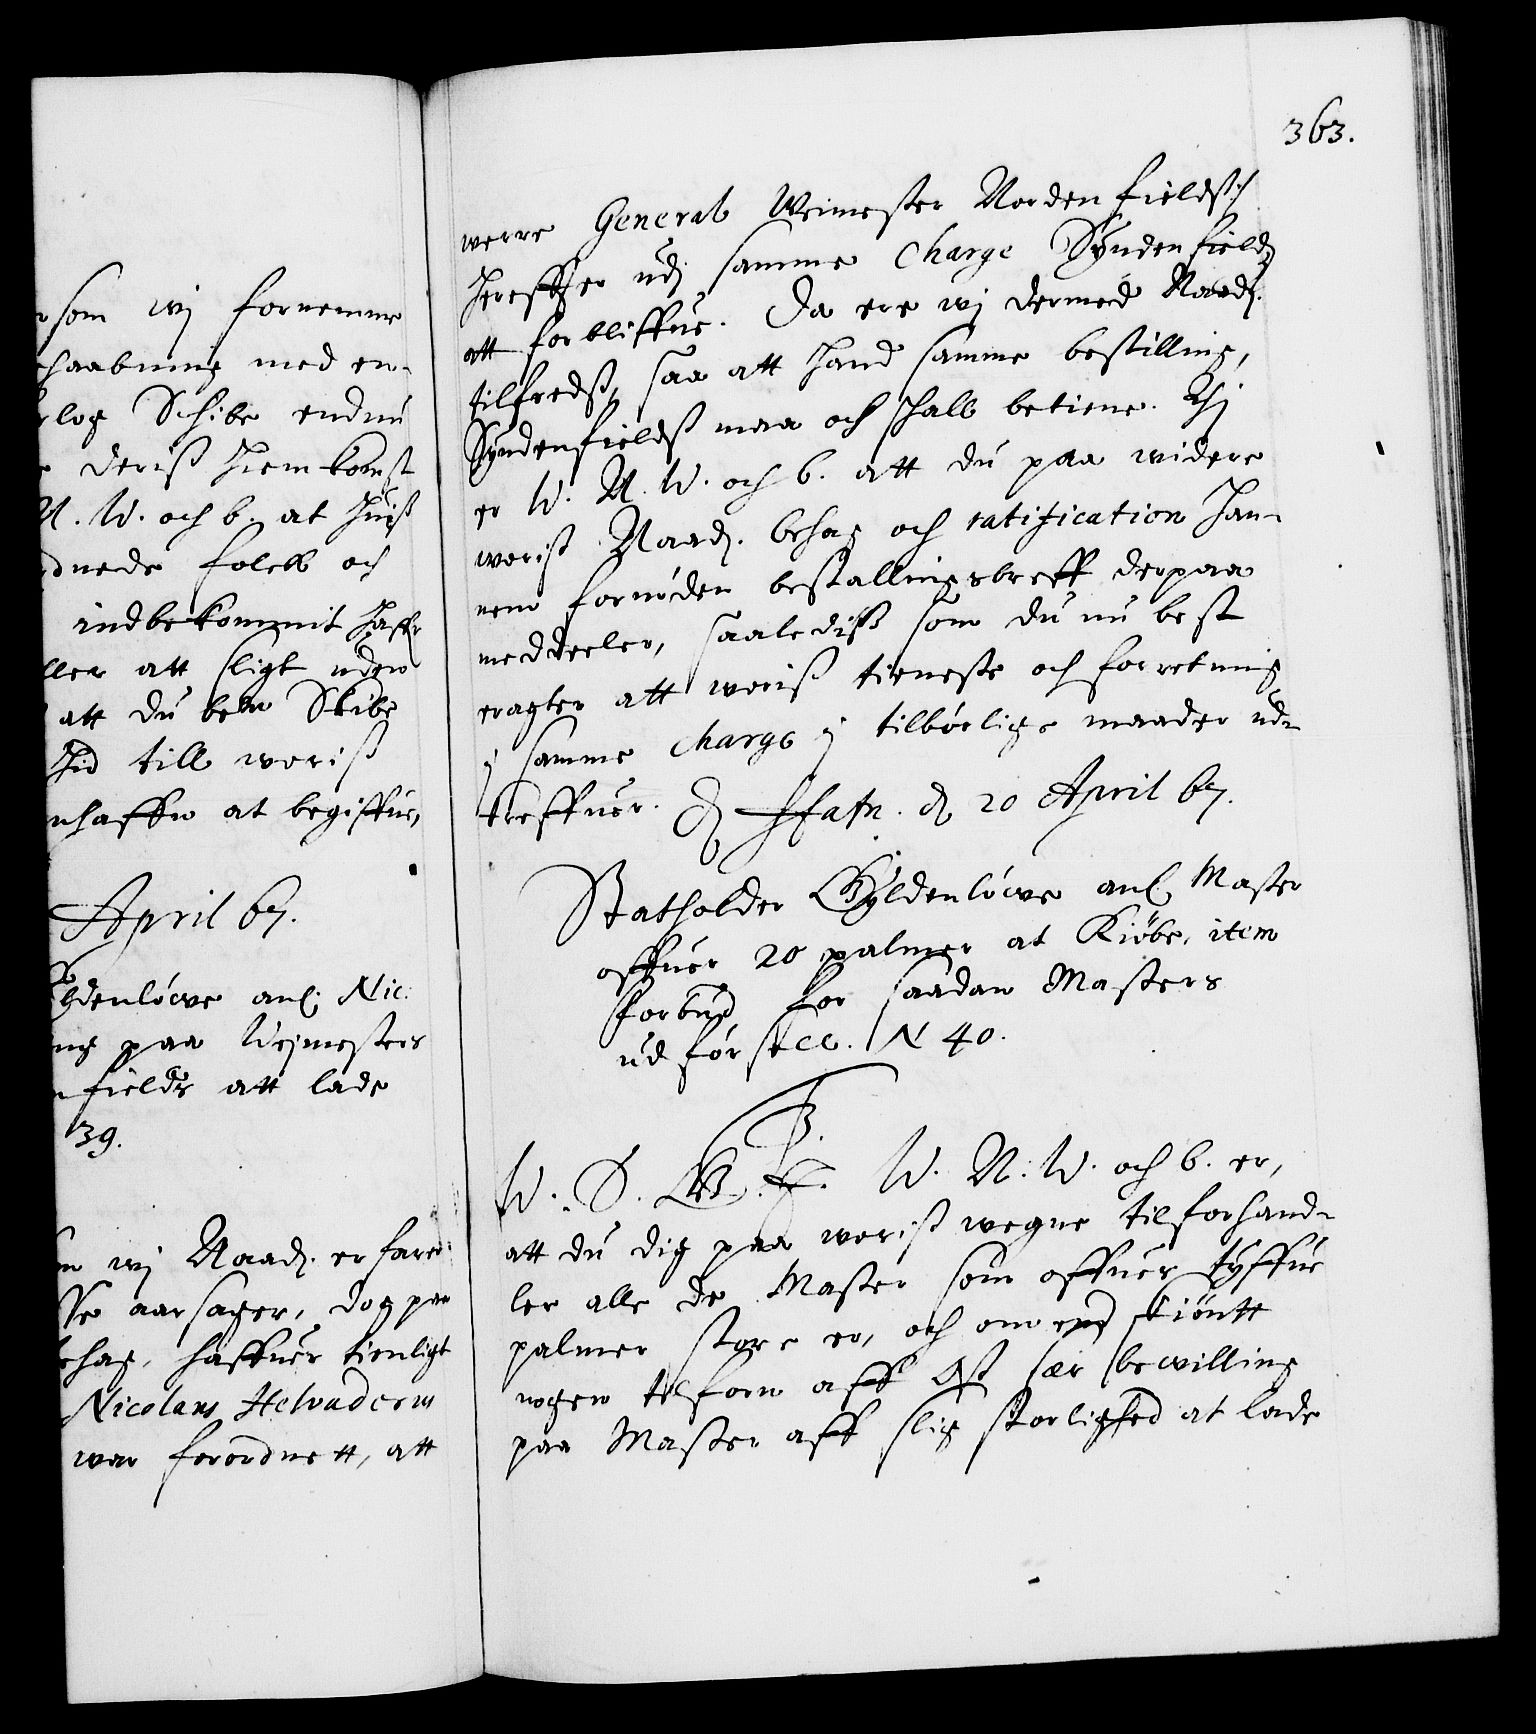 rsom wj fornemme
schaabning med en-
rlog Schibe endnu
deriss Hiemkomst
N. W. och b. at huiss
dnede folck och
indbekommit haffr
ller att sligt uden
att du bem Skibe
Hid till woriss
nhaffn at begiffue,
April 67.
ldenlöwe anl. Nic:
ng paa Wejmesters
nfields att lade
39.
m wj Naadj. erfarer
sse aarsager, dog paa
behag, haffuer tienligt
Nicolaus Helvaderus
war forordnett, att
363.
werre General Weimester Nordenfieldsch
hereffter udj samme Charge Syndenfields
att forbliffue. Da ere wj dermed Naadj.
tilfredss, saa att hand samme bestilling,
Syndenfieldss maa och schall betiene. Thj
er W. N. W. och b. att du paa widere
woriss Naadj. behag och ratification han-
nem fornöden bestallingsbreff derpaa
meddeeler, saalediss som du nu best
eragter att woriss tieneste och forretning
j samme charge j tilbörlige maader ud-
kreffuer. Hafn. d 20 April 67.
Statholder Gyldenlöwe anl. Master
offuer 20 palmer at Kiöbe, item
forbud for saadan Masters
udförsell. N 40.
F 3.
W. S. G. T. W. N. W. och b. er,
att du dig paa woriss wegne tilforhand-
ler alle de Master som offuer tyffue
palmer store er, och om end skiöntt
nogen tilforn aff Oss sær bewilling
paa Master aff slig storlighed at lade